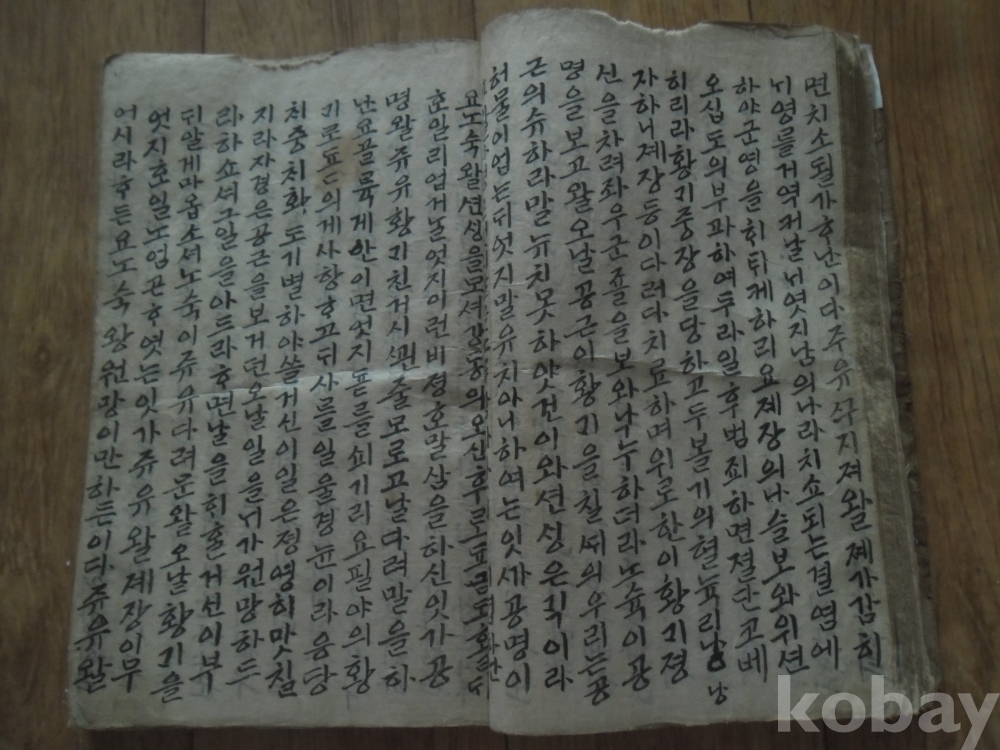 면치소될가ᄒᆞ난이다주유ᄭᅮ지져왈졔가감히
뉘영를거역져날뉘엿지남의나라치쇼되는결염에
하야군영을취튀케하리요졔장의나슬보와위션
오십도의부과하여두라일후범죄하면졀단코베
히리라황긔즁장을당하고두볼기의혈뉵리낭낭
자하니졔장등이다러다치료하며위로한이황긔졍
신을차려좌우군죨을보와낙누하더라노슉이공
명을보고왈오날공근이황긔을칠ᄯᅦ의우리는공
근의슈하라말뉴치못하얏건이와션성은긱이라
허물이업는듸엇지말유치아니하여는잇ᄭᅡ공명이
요노슉왈션성을모셔강동의오신후로
호일리업거늘엇지이런비졍호말삼을하신잇가공
명왈쥬유황긔친거시쬔줄모로고날다려말을하
난요믈륙게안이면엇지됴를쇠기리요필야의황
긔로됴됴의게사항ᄒᆞ고듸사를일울경눈이라응당
치즁치화도기별하야쓸거신이일은졍영히맛칠
지라자경은공근을보거던오날일을뉘가원망하드
라하쇼셔그일을아드라ᄒᆞ면날을히홀거션이부
듸알게마옵소셔노슉이쥬유다려문왈오날황긔을
엇지호일노엄곤ᄒᆞ엿는잇가쥬유왈졔장이무
어시라ᄒᆞ든요노슉왈원망이만하든이다쥬유왈
kobay